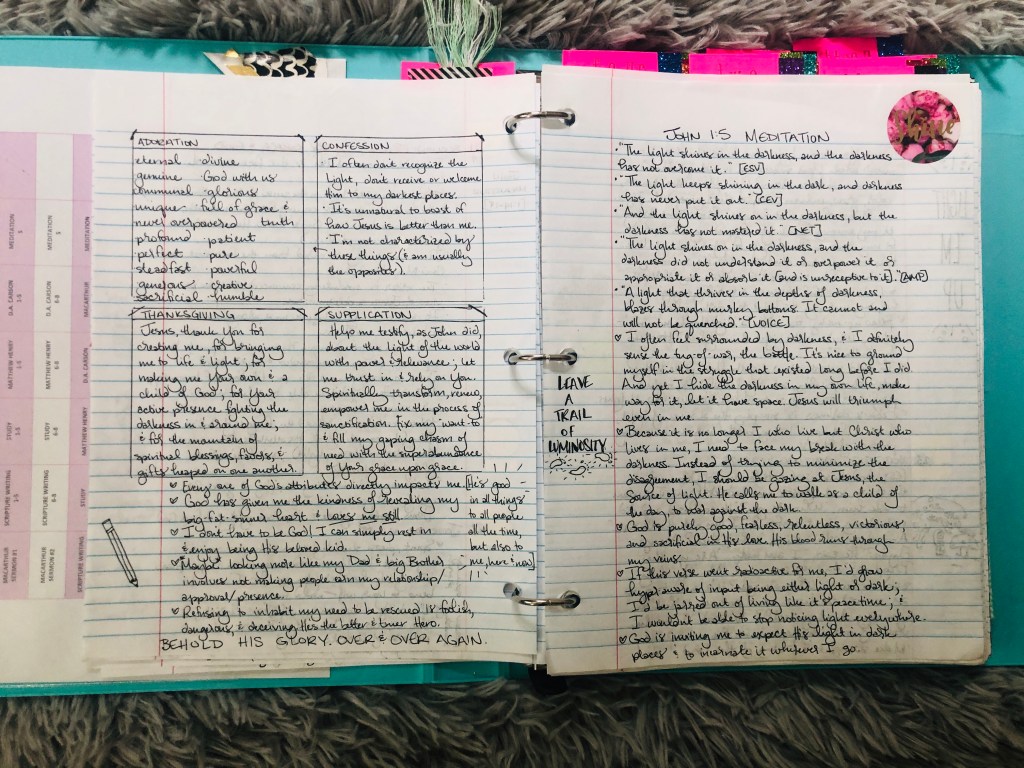 ADORATION
eternal · divine
genuine · God with us
communal · glorious
unique · full of grace &
never overpowered truth
profound · patient
perfect · pure
steadfast · powerful
generous · creative
sacrificial · humble
CONFESSION
· I often don't recognize the
Light, don't receive or welcome
Him to my darkest places.
· It's unnatural to boast of
how Jesus is better than me.
· I'm not characterized by
these things (I am usually
the opposite).
THANKSGIVING
Jesus, thank You for
creating me, for bringing
me to life & light; for
making me Your own & a
child of God; for your
active presence fighting the
darkness in & around me;
& for the mountain of
spiritual blessings, favors, &
gifts heaped on one another.
SUPPLICATION
Help me testify, as John did,
about the Light of the world
with power & relevance; let
me trust in & rely on You.
Spiritually transform, renew,
empower me in the process of
sanctification. Fix my "want to"
& fill my gaping chasm of
need with the superabundance
of Your grace upon grace.
♡ Every one of God's attributes directly impacts me.
♡ God has given me the kindness of revealing my
big fat sinner heart & loves me still.
♡ I don't have to be God! I can simply rest in
& enjoy being His beloved kid.
♡ Maybe looking more like my Dad & big Brother
involves not making people earn my relationship/
approval/presence.
♡ Refusing to inhabit my need to be rescued is foolish,
dangerous, & deceiving. He's the better & truer Hero.
[His good
in all things
to all people
all the time,
but also to
me, here & now]
BEHOLD HIS GLORY. OVER & OVER AGAIN.
LEAVE
A
TRAIL
OF
LUMINOSITY
JOHN 1:5 MEDITATION
shine
· "The light shines in the darkness, and the darkness
has not overcome it." [ESV]
· "The light keeps shining in the dark, and darkness
has never put it out." [CEV]
· "And the light shines on in the darkness, but the
darkness has not mastered it." [NET]
· "The light shines on in the darkness, and the
darkness did not understand it or overpower it or
appropriate it or absorb it [and is unreceptive to it]." [AMP]
· "A light that thrives in the depths of darkness,
blazes through murky bottoms. It cannot and
will not be quenched." [VOICE]
♡ I often feel surrounded by darkness, & I definitely
sense the tug-of-war, the battle. It's nice to ground
myself in the struggle that existed long before I did.
And yet I hide the darkness in my own life, make
way for it, let it have space. Jesus will triumph
even in me.
♡ Because it is no longer I who live but Christ who
lives in me, I need to face my break with the
darkness. Instead of trying to minimize the
disagreement, I should be gazing at Jesus, the
Source of Light. He calls me to walk as a child of
the day, to war against the dark.
♡ God is purely good, fearless, relentless, victorious,
and sacrificial in His love. His blood runs through
my veins.
♡ If this verse went radioactive for me, I'd grow
hyper aware of input being either light or dark;
I'd be jarred out of living like it's peacetime; &
I wouldn't be able to stop noticing light everywhere.
♡ God is inviting me to expect His light in dark
places & to incarnate it wherever I go.
MEDITATION
MEDITATION
MEDITATION
D.A. CARSON
1-5
D.A. CARSON
6-8
MACARTHUR
MATTHEW HENRY
1-5
MATTHEW HENRY
6-8
D.A. CARSON
STUDY
1-5
STUDY
6-8
MATTHEW HENRY
SCRIPTURE WRITING
1-5
SCRIPTURE WRITING
6-8
STUDY
MACARTHUR
SERMON #1
MACARTHUR
SERMON #2
SCRIPTURE WRITING